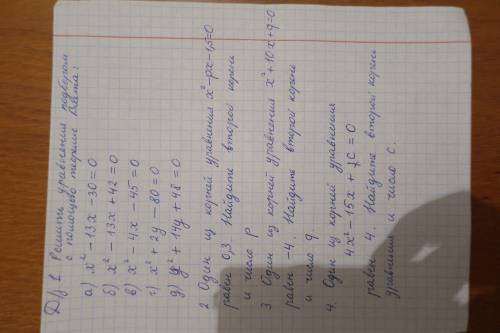 Д/з 1 Решить уравнения подбором
с помощью теоремы Виета:
а) x² - 13x - 30 = 0
б) x² - 13x + 42 = 0
в) x² - 4x - 45 = 0
г) x² + 2y - 80 = 0
д) y² + 14y + 48 = 0
2 Один из корней уравнения x² - px - 1,5 = 0
равен 0,3 Найдите второй корень
и число p
3 Один из корней уравнения x² + 10x + q = 0
равен -4. Найдите второй корень
и число q
4. Один из корней уравнения
4x² - 15x + C = 0
равен 4. Найдите второй корень
уравнения и число C.